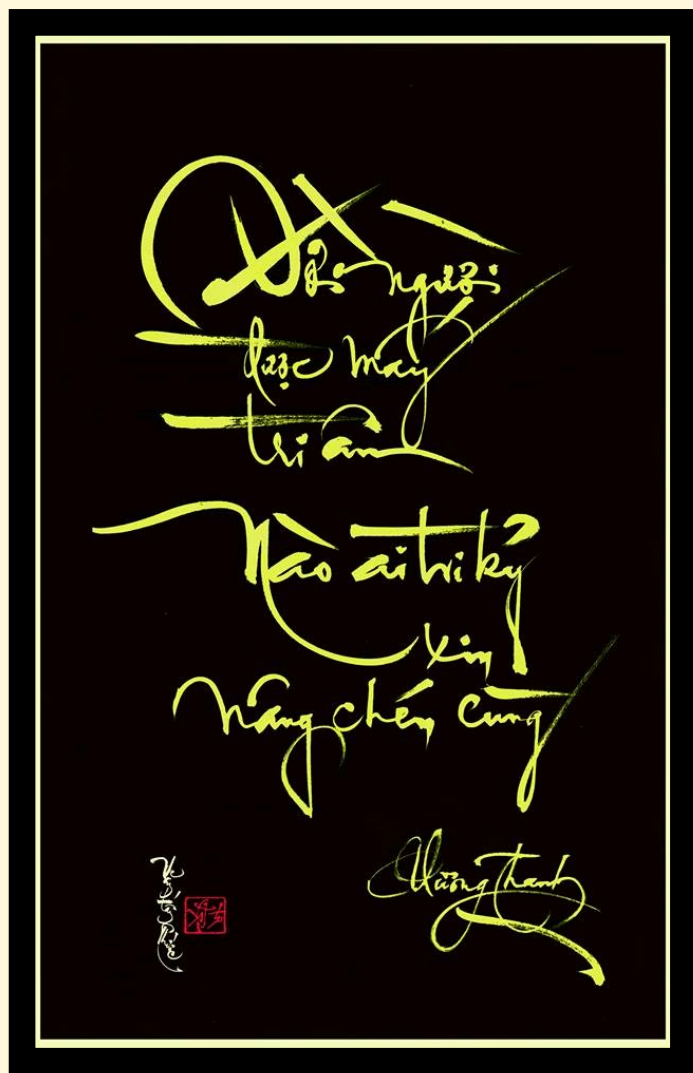 Đời người
được mấy
tri âm
Nào ai tri kỷ
xin
nâng chén cùng
Vương Thanh